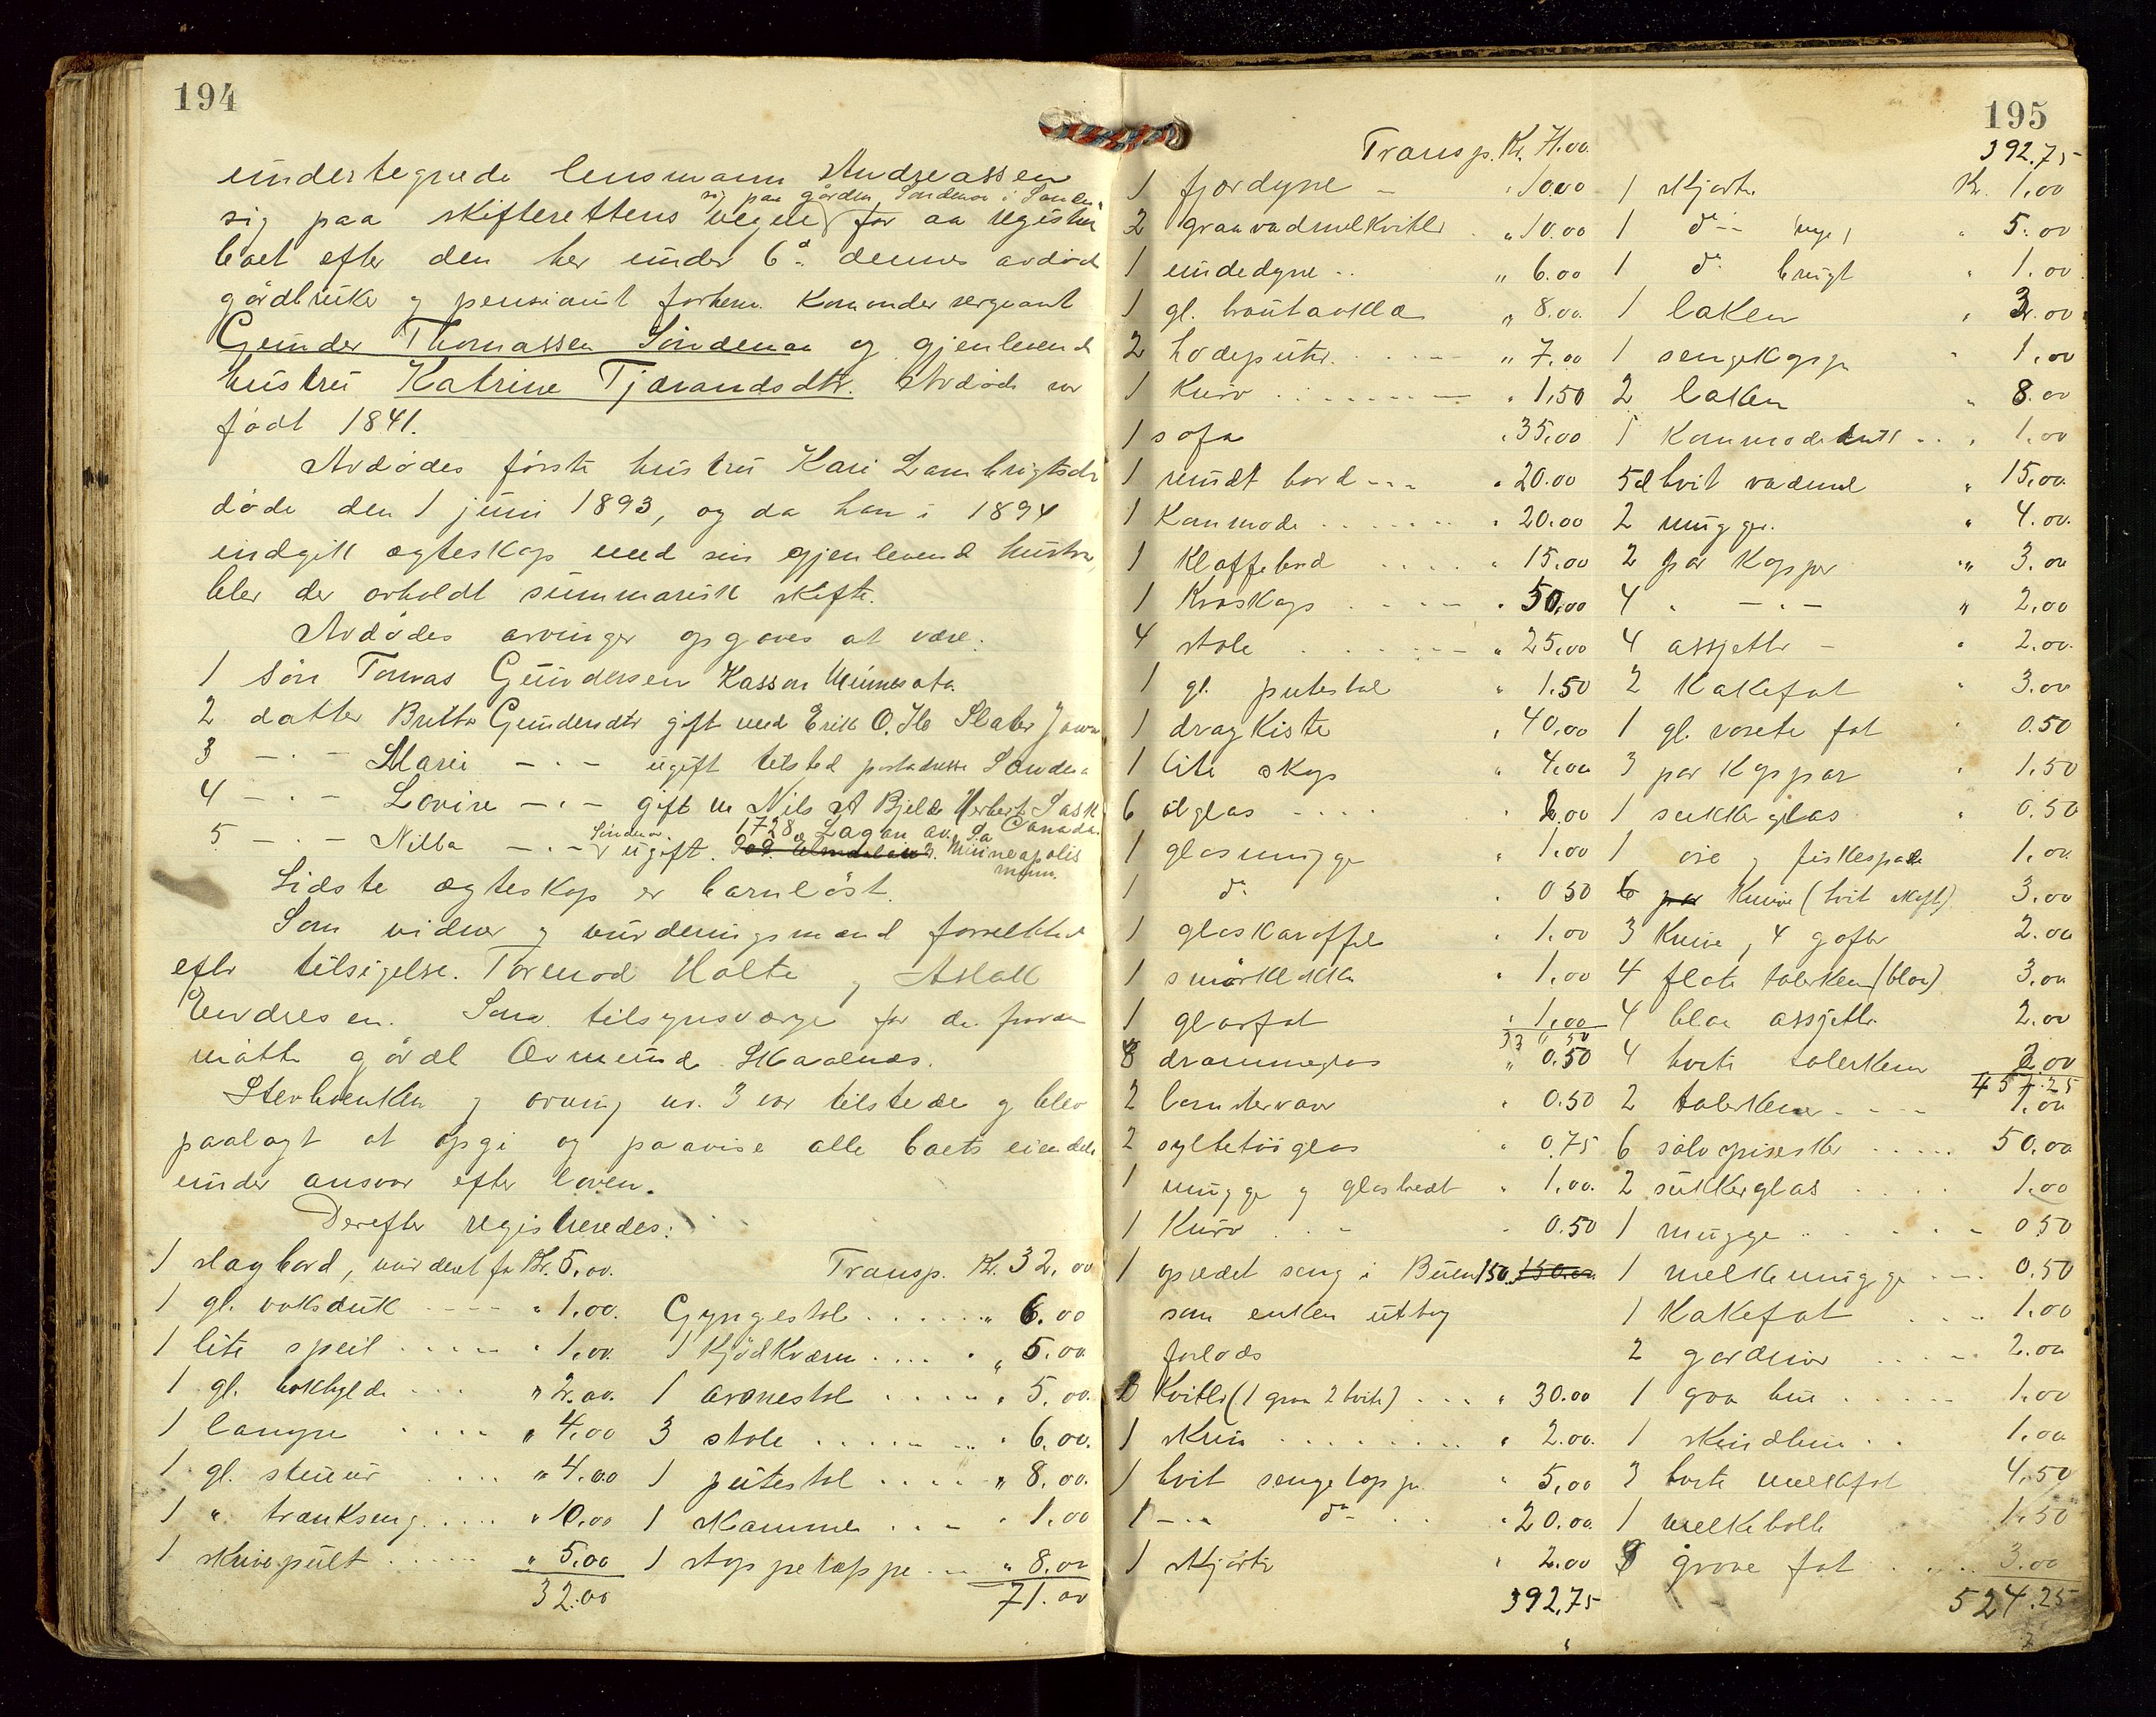 194
undertegnede lensmann Andreassen
sig paa gården Söndenaa i Sande
sig paa skifterettens vegne for aa registrer
boet efter den her under 6d. dennes avdöde
gårdbruker og pensionist forhenv. Kommander sergeant
Gunder Thomassen Söndenaa og gjenlevende
hustru Katrine Tjærandsdtr. Avdöde var
födt 1841.
Avdödes förste hustru Kari Lambrigtsdtr
döde den 1 juni 1893, og da han i 1894
indgik ægteskap med sin gjenlevende hustru,
blev der avholdt summarisk skifte.
Avdödes arvinger opgaves at være:
1 Sön Tomas Gundersen Kasson Minnesota.
2 datter Britha Gundersdtr gift med Erik O. Slater Jowa
3 - " - Marie - " - ugift tilsted postadresse Sandeid
4 - " - Lovise - " - gift m Nils A Bjelde Herbert Sask
Canada.
5 - " - Nilla - " - Söndenaa ugift. 1728 Lagan av. Sa Minneapolis
minn.
Sidste ægteskap er barnlöst.
Som vidner og vurderingsmænd fremstillet
efter tilsigelse. Tormod Holte og Aslak
Endresen. Som tilsynsværge for de fravær
mötte gårdbr Osmund Skaalnes.
Sterboenken og arving nr. 3 var tilstede og blev
paalagt at opgi og paavise alle boets eiendele
under ansvar efter loven.
Derefter registreredes:
1 slagbord, vurderet for Kr. 5.00.
1 gl. voksduk " 1.00.
1 lite speil " 1.00.
1 gl. bokhylde " 2.00.
1 lampe " 4.00
1 gl. stueur " 4.00
1 " trækseng " 10.00
1 skrivepult " 5.00
32.00
Transp. Kr. 32.00
Gyngestol " 6.00
1 Kjödkværn " 5.00
1 armestol " 5.00.
3 stole " 6.00.
1 putestol " 8.00.
1 skammel " 1.00
1 stoppetæppe " 8.00
71.00
195
Transp. Kr. 71.00.
1 fjærdyne " 10.00
2 graavadmelkvitler " 10.00
1 undedyne " 6.00
1 gl. brautaaklæ " 8.00.
2 hodeputer " 7.00
1 Kurv " 1,50
1 sofa " 35.00
1 rundt bord " 20.00
1 Kommode " 20.00
1 Klaffebord " 15.00
1 Kroskap " 50.00
4 stole " 25.00
1 gl. putestol " 1.50
1 dragkiste " 40.00
1 lite skap " 4.00
6 ölglas 2.00
1 glasmugge " 1.00
1 do " 0 50
1 glaskaraffel " 1.00
1 smörklokke " 1.00
1 glasfat " 1.00
8 dramglas " 0.50
2 " 0.50
2 syltetöiglas " 0.75
1 mugge og glasbrett " 1.00.
1 Kurv 0.50
1 opredet seng i Buen 150 150.00
som enken uttog
forlods
3 Kvitler (1 graa 2 hvite) " 30.00
1 skrin " 2.00.
1 hvit sengetæppe " 5.00
1 - " - do " 20.00.
1 skjörte " 2.00
392,75
392.75
1 skjorte Kr. 1.00
1 do (nye) " 5.00
1 do brugt " 1.00
1 laken " 3.00
1 sengekappe " 1.00
2 laken " 8.00
1 Kommodedukk " 1.00
5 al hvit vadmel " 15.00.
2 mugger " 4.00.
2 par Kopper " 3.00
4 - " - " 2.00
4 assjetter " 2.00.
2 Kakefat " 3.00
1 gl. rosete fat 0.50
3 par Koppar " 1.50
1 sukkerglas " 0.50
1 øse og fiskespade 1.00
6 par Knive (hvit skaft) 3.00
3 Knive, 4 gafler 2.00
4 flate talerken (blaa) 3.00
4 blaa assjetter 2.00
4 hvite talerkener 2.00
454.25
2 talerkener 1.00
6 sölvspiseskeer 50.00
2 sukkerglas 1.00
1 mugge 0.50
1 melkemugge 0.50
1 Kakefat 1.00
2 gardiner 2.00
1 graa 1.00
1 1.00
3 hvite melkefat 4.50
1 melkebolle 1.50
3 grove fat 3.00
524.25